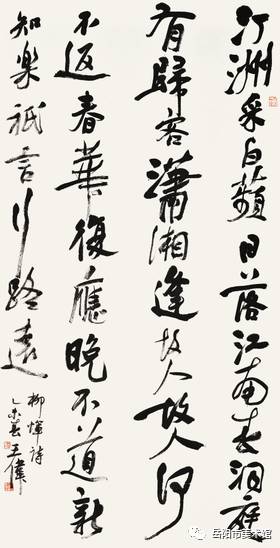 汀洲采白蘋日落江南春洞庭
有歸客瀟湘逢故人故人何
不返春華復應晚不道新
知樂祇言行路遠
柳惲詩
乙未春王偉
岳阳市美术馆